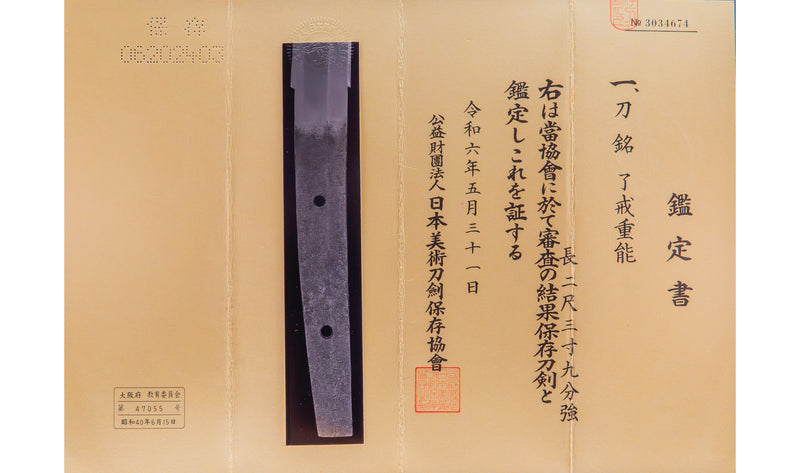 № 3034674
鑑定書
一、刀 銘 了戒重能
長二尺三寸九分強
右は當協會に於て審査の結果保存刀剣と
鑑定しこれを証する
令和六年五月三十一日
公益財團法人 日本美術刀劍保存協會
保存
06202403
大阪府 教育委員会
第 47055 号
昭和40年6月15日